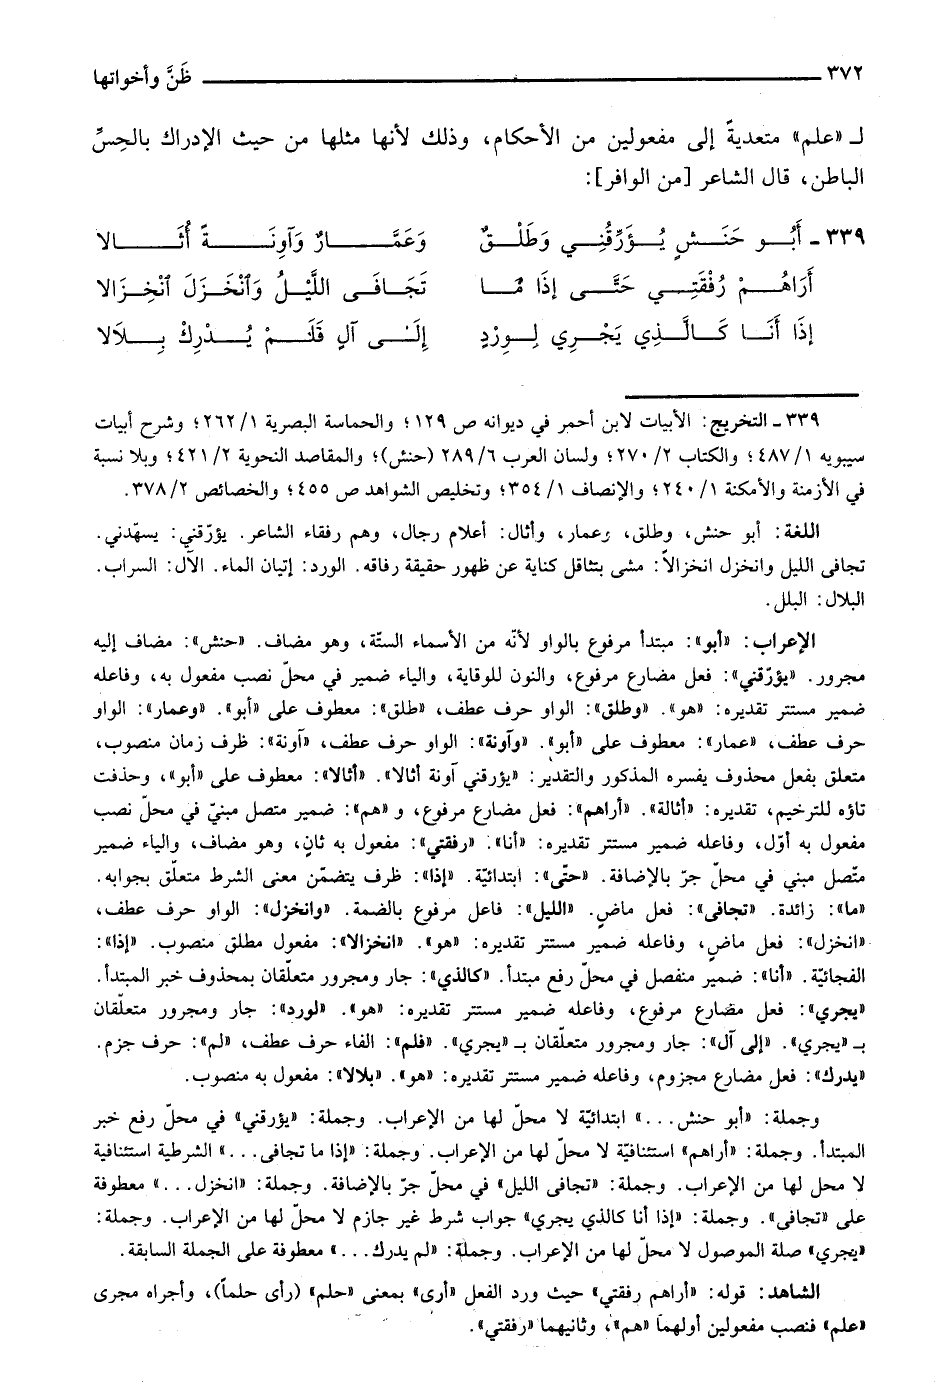 ٣٧٢ ظَنَّ وأخواتها
لـ «علم» متعديةً إلى مفعولين من الأحكام، وذلك لأنها مثلها من حيث الإدراك بالحِسِّ
الباطن، قال الشاعر [من الوافر]:
٣٣٩ - أَبُو حَنَشٍ يُؤَرِّقُنِي وَطَلْقٌ وَعَمَّارٌ وَآوِنَةً أُثَالا
أَرَاهُمْ رُفْقَتِي حَتَّى إِذَا مَا تَجَافَى اللَّيْلُ وَٱنْخَزَلَ ٱنْخِزَالا
إِذَا أَنَا كَالَّذِي يَجْرِي لِوِرْدٍ إِلَى آلٍ فَلَمْ يُدْرِكْ بِلَالا
٣٣٩ - التخريج: الأبيات لابن أحمر في ديوانه ص ١٢٩؛ والحماسة البصرية ١/ ٢٦٢؛ وشرح أبيات
سيبويه ١/ ٤٨٧؛ والكتاب ٢/ ٢٧٠؛ ولسان العرب ٦/ ٢٨٩ (حنش)؛ والمقاصد النحوية ٢/ ٤٢١؛ وبلا نسبة
في الأزمنة والأمكنة ١/ ٢٤٠؛ والإنصاف ١/ ٣٥٤؛ وتخليص الشواهد ص ٤٥٥؛ والخصائص ٢/ ٣٧٨.
اللغة: أبو حنش، وطلق، وعمار، وأثال: أعلام رجال، وهم رفقاء الشاعر. يؤرّقني: يسهّدني.
تجافى الليل وانخزل انخزالاً: مشى بتثاقل كناية عن ظهور حقيقة رفاقه. الورد: إتيان الماء. الآل: السراب.
البلال: البلل.
الإعراب: «أبو»: مبتدأ مرفوع بالواو لأنّه من الأسماء الستّة، وهو مضاف. «حنش»: مضاف إليه
مجرور. «يؤرّقني»: فعل مضارع مرفوع، والنون للوقاية، والياء ضمير في محلّ نصب مفعول به، وفاعله
ضمير مستتر تقديره: «هو». «وطلق»: الواو حرف عطف، «طلق»: معطوف على «أبو». «وعمار»: الواو
حرف عطف، «عمار»: معطوف على «أبو». «وآونة»: الواو حرف عطف، «آونة»: ظرف زمان منصوب،
متعلق بفعل محذوف يفسره المذكور والتقدير: «يؤرقني آونة أثالا». «أثالا»: معطوف على «أبو»، وحذفت
تاؤه للترخيم، تقديره: «أثالة». «أراهم»: فعل مضارع مرفوع، و «هم»: ضمير متصل مبنيّ في محلّ نصب
مفعول به أوّل، وفاعله ضمير مستتر تقديره: «أنا». «رفقتي»: مفعول به ثانٍ، وهو مضاف، والياء ضمير
متّصل مبني في محلّ جرّ بالإضافة. «حتّى»: ابتدائيّة. «إذا»: ظرف يتضمّن معنى الشرط متعلّق بجوابه.
«ما»: زائدة. «تجافى»: فعل ماضٍ. «الليل»: فاعل مرفوع بالضمة. «وانخزل»: الواو حرف عطف،
«انخزل»: فعل ماضٍ، وفاعله ضمير مستتر تقديره: «هو». «انخزالا»: مفعول مطلق منصوب. «إذا»:
الفجائيّة. «أنا»: ضمير منفصل في محلّ رفع مبتدأ. «كالذي»: جار ومجرور متعلّقان بمحذوف خبر المبتدأ.
«يجري»: فعل مضارع مرفوع، وفاعله ضمير مستتر تقديره: «هو». «لورد»: جار ومجرور متعلّقان
بـ «يجري». «إلى آل»: جار ومجرور متعلّقان بـ «يجري». «فلم»: الفاء حرف عطف، «لم»: حرف جزم.
«يدرك»: فعل مضارع مجزوم، وفاعله ضمير مستتر تقديره: «هو». «بلالا»: مفعول به منصوب.
وجملة: «أبو حنش...» ابتدائيّة لا محلّ لها من الإعراب. وجملة: «يؤرقني» في محلّ رفع خبر
المبتدأ. وجملة: «أراهم» استئنافيّة لا محلّ لها من الإعراب. وجملة: «إذا ما تجافى...» الشرطية استئنافية
لا محل لها من الإعراب. وجملة: «تجافى الليل» في محلّ جرّ بالإضافة. وجملة: «انخزل...» معطوفة
على «تجافى». وجملة: «إذا أنا كالذي يجري» جواب شرط غير جازم لا محلّ لها من الإعراب. وجملة:
«يجري» صلة الموصول لا محلّ لها من الإعراب. وجملة: «لم يدرك...» معطوفة على الجملة السابقة.
الشاهد: قوله: «أراهم رفقتي» حيث ورد الفعل «أرى» بمعنى «حلم» (رأى حلماً)، وأجراه مجرى
«علم» فنصب مفعولين أولهما «هم»، وثانيهما «رفقتي».